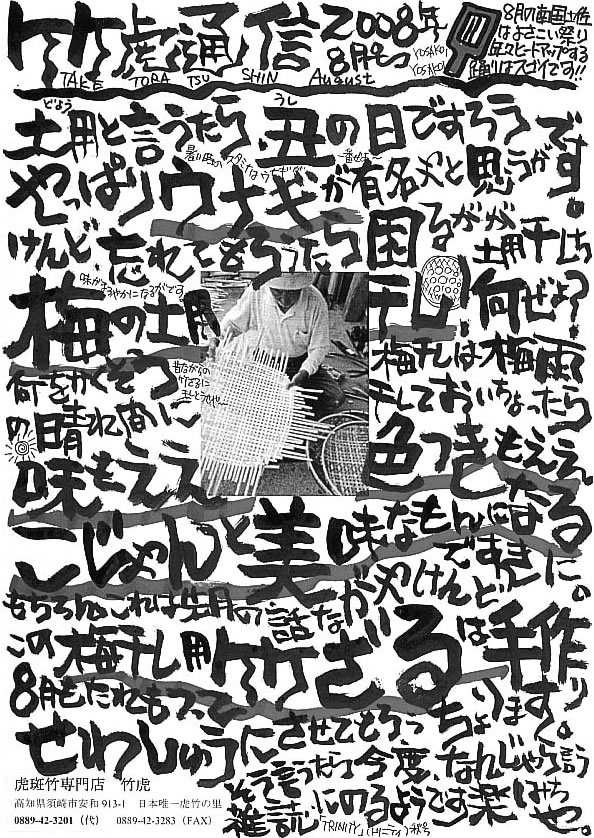 竹虎通信 2008年
8月号
TAKE TORA TSU SHIN August
YOSAKOI
YOSAKOI
8月の南国土佐
はよさこい祭り
年々ヒートアップする
踊りはスゴイです!!
どよう うし
土用と言うたら、丑の日ですろう
やっぱりウナギが有名やと思うがです。
けんど、忘れてもろうたら困るがが土用干し
梅の土用干し! 何ぜよ?
味がまろやかになるがです
昔ながらの
竹ざるに
何をかくそう梅干しは梅雨
の晴れ間に干しておいちょったら
味もええ色つきもええ
こじゃんと美味なもんになるに。
もちろんこれは先月の話ながやけんど
この梅干し用竹ざるは手作り
8月も
せわしゅうにさせてもろうちょります。
そう言うたら今度、なんじゃら言う
雑誌にのるようです楽しみちや。
虎斑竹専門店 竹虎
高知県須崎市安和913-1 日本唯一虎竹の里
0889-42-3201(代) 0889-42-3283(FAX)